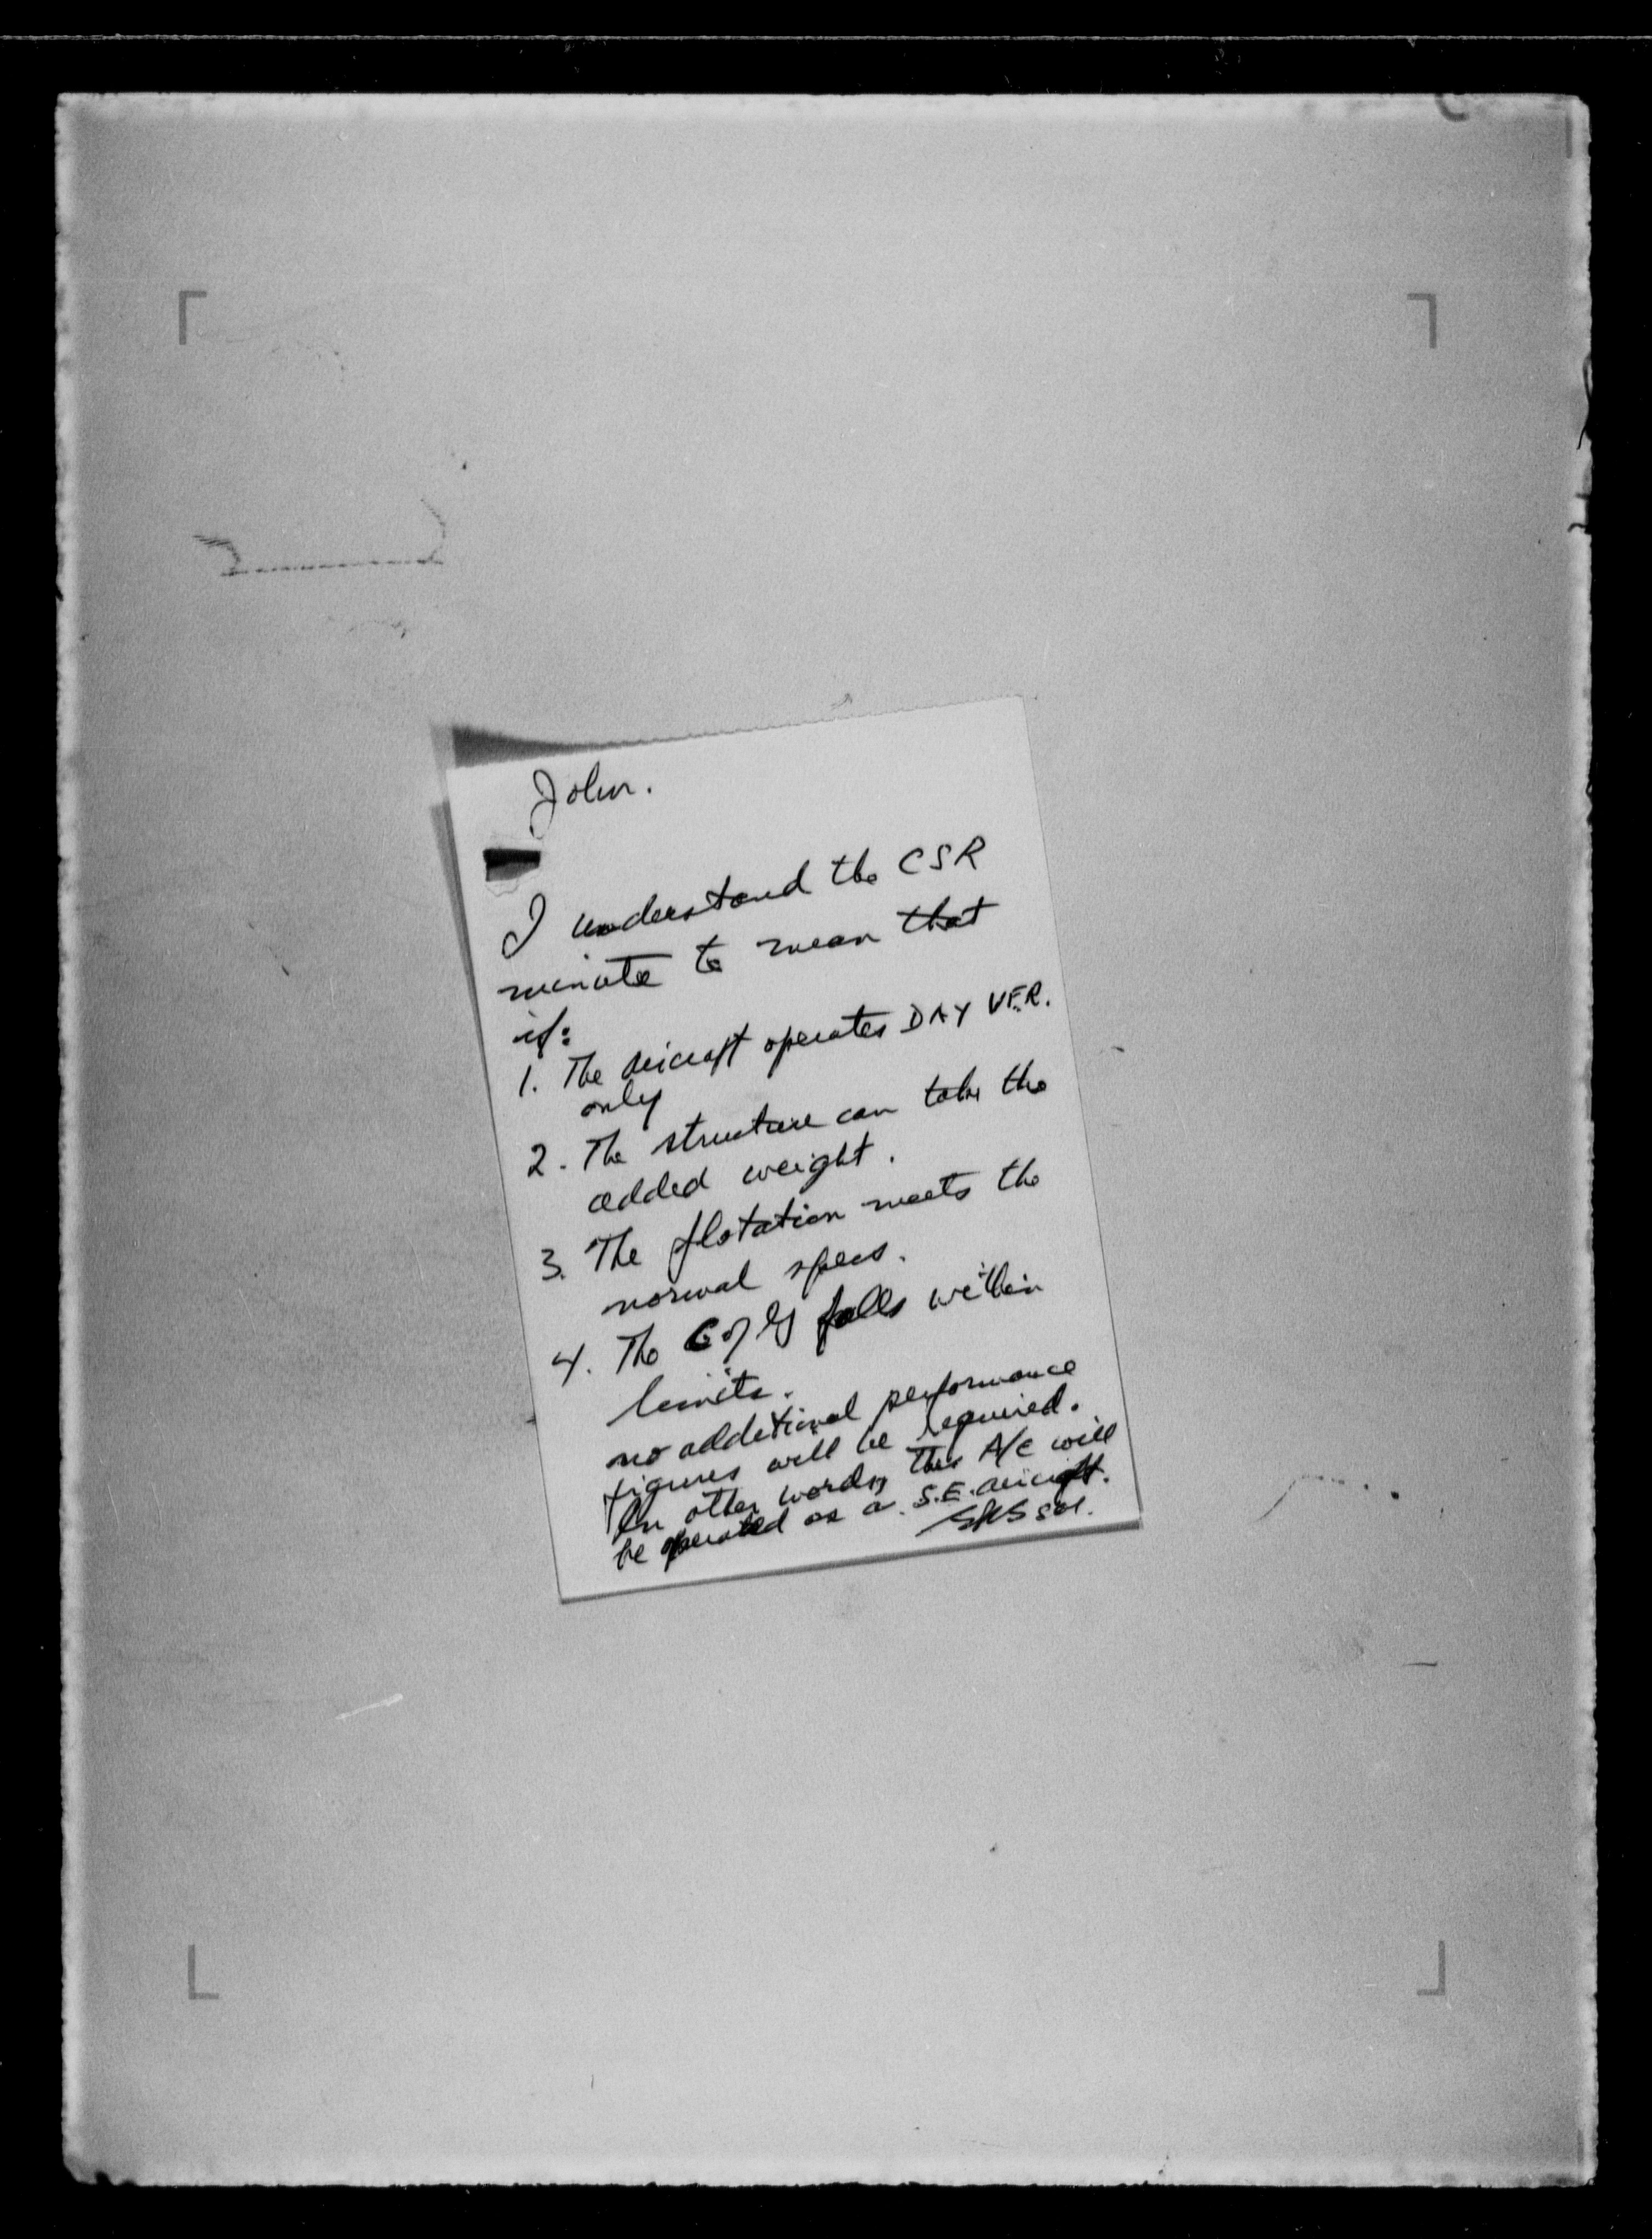 John.
I understand the CSR
minute to mean that
if:
1. The aircraft operates DAY VFR.
only
2. The structure can take the
added weight.
3. The flotation meets the
normal specs.
4. The C of G falls within
limits.
no additional performance
figures will be required.
In other words, this A/C will
be operated as a S.E. aircraft.